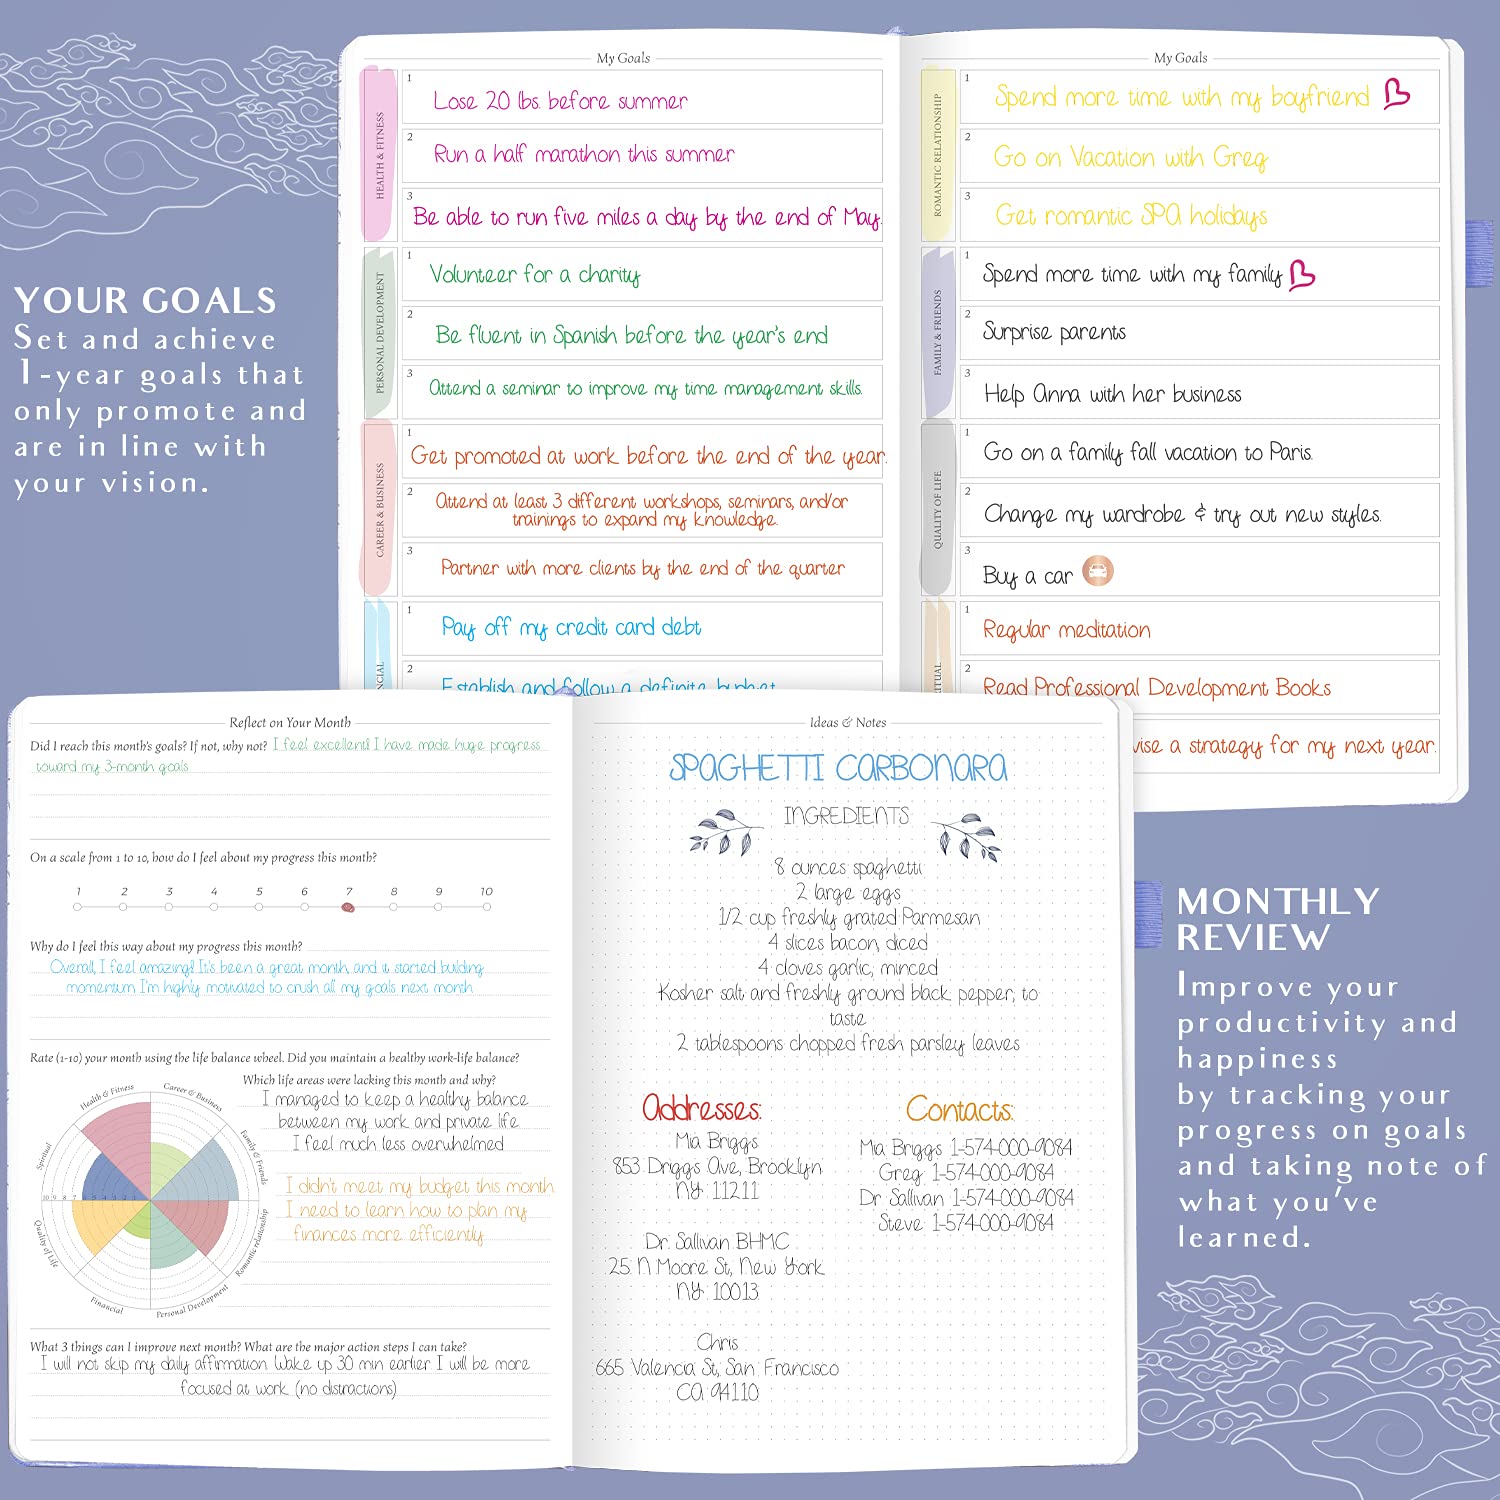 YOUR GOALS
Set and achieve
1-year goals that
only promote and
are in line with
your vision.
My Goals
HEALTH & FITNESS
1 Lose 20 lbs. before summer
2 Run a half marathon this summer
3 Be able to run five miles a day by the end of May.
PERSONAL DEVELOPMENT
1 Volunteer for a charity
2 Be fluent in Spanish before the year's end
3 Attend a seminar to improve my time management skills.
CAREER & BUSINESS
1 Get promoted at work before the end of the year.
2 Attend at least 3 different workshops, seminars, and/or
trainings to expand my knowledge.
3 Partner with more clients by the end of the quarter
NCIAL
1 Pay off my credit card debt
2 Establish and follow a definite budget
My Goals
ROMANTIC RELATIONSHIP
1 Spend more time with my boyfriend
2 Go on Vacation with Greg
3 Get romantic SPA holidays
FAMILY & FRIENDS
1 Spend more time with my family
2 Surprise parents
3 Help Anna with her business
QUALITY OF LIFE
1 Go on a family fall vacation to Paris.
2 Change my wardrobe & try out new styles.
3 Buy a car
RITUAL
1 Regular meditation
2 Read Professional Development Books
vise a strategy for my next year.
Reflect on Your Month
Did I reach this month's goals? If not, why not? I feel excellent! I have made huge progress
toward my 3-month goals
On a scale from 1 to 10, how do I feel about my progress this month?
1 2 3 4 5 6 7 8 9 10
Why do I feel this way about my progress this month?
Overall, I feel amazing! It's been a great month, and it started building
momentum. I'm highly motivated to crush all my goals next month
Rate (1-10) your month using the life balance wheel. Did you maintain a healthy work-life balance?
Health & Fitness
Career & Business
Family & Friends
Romantic relationship
Personal Development
Financial
Quality of Life
Spiritual
10 9 8 7 6 5 4 3 2 1
Which life areas were lacking this month and why?
I managed to keep a healthy balance
between my work and private life
I feel much less overwhelmed
I didn't meet my budget this month
I need to learn how to plan my
finances more efficiently
What 3 things can I improve next month? What are the major action steps I can take?
I will not skip my daily affirmation. Wake up 30 min earlier I will be more
focused at work (no distractions)
Ideas & Notes
SPAGHETTI CARBONARA
INGREDIENTS
8 ounces spaghetti
2 large eggs
1/2 cup freshly grated Parmesan
4 slices bacon, diced
4 cloves garlic, minced
Kosher salt and freshly ground black pepper, to
taste
2 tablespoons chopped fresh parsley leaves
Addresses:
Mia Briggs
853 Driggs Ave, Brooklyn
NY 11211
Dr. Sallivan BHMC
25 N Moore St, New York
NY 10013
Chris
665 Valencia St, San Francisco
CA 94110
Contacts:
Mia Briggs 1-574-000-9084
Greg 1-574-000-9084
Dr Sallivan 1-574-000-9084
Steve 1-574-000-9084
MONTHLY
REVIEW
Improve your
productivity and
happiness
by tracking your
progress on goals
and taking note of
what you've
learned.